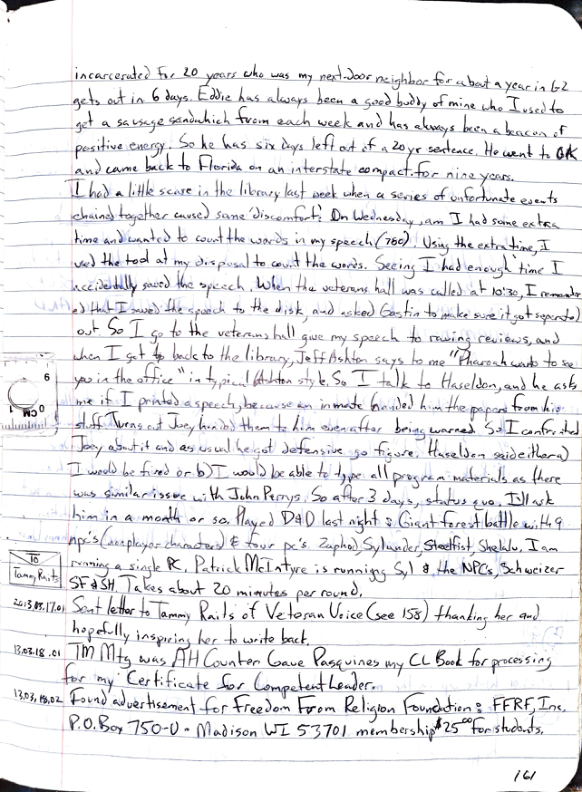 incarcerated for 20 years who was my next-door neighbor for about a year in G2
gets out in 6 days. Eddie has always been a good buddy of mine who I used to
get a sausage sandwhich from each week and has always been a beacon of
positive energy. So he has six days left out of a 20 yr sentence. He went to OK
and came back to Florida on an interstate compact for nine years.
I had a little scare in the library last week when a series of unfortunate events
chained together caused some 'discomfort'. On Wednesday, am I had some extra
time and wanted to count the words in my speech (760). Using the extra time, I
used the tool at my disposal to count the words. Seeing I had enough time I
accidentally saved the speech. When the veterans hall was called at 10:30, I remember
ed that I saved the speech to the disk, and asked Gastin to make sure it got separated
out. So I go to the veterans hall give my speech to rowing reviews, and
when I got to back to the library, Jeff Ashton says to me "Pharoah wants to see
you in the office" in typical Ashton style. So I talk to Haseldon, and he asks
me if I printed a speech, because an inmate handed him the papers from his
stuff. Turns out Joey handed them to him even after being warned. So I confronted
Joey about it and as usual he got defensive, go figure. Haseldon said either a)
I would be fired or b) I would be able to type all program materials as there
was similar issue with John Perrys. So after 3 days, status quo. I'll ask
him in a month or so. Played D&D last night: Giant forest battle with 9
npc's (nonplayer characters) & four pc's. Zaphod, Sylunder, Steelfist, Shelulu, I am
running a single PC. Patrick McIntyre is running Syl & the NPC's, Schweizer
SF & SH. Takes about 20 minutes per round.
TO
Tammy Raits
2013.03.17.01 Sent letter to Tammy Raits of Veteran Voice (see 158) thanking her and
hopefully inspiring her to write back.
13.03.18.01 TM Mtg was AH Counter Gave Pasquines my CL Book for processing
for my Certificate for Competent Leader.
13.03.18.02 Found advertisement for Freedom From Religion Foundation: FFRF, Inc.
P.O. Box 750-U - Madison WI 53701 membership $25.00 for students.
161
6
0 CM 1